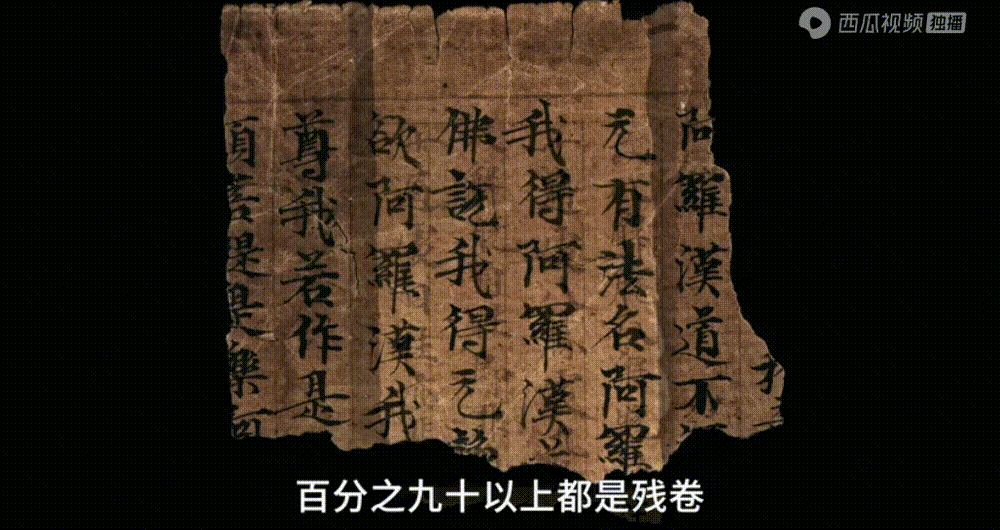 西瓜视频 独播
阿羅漢道不
无有法名阿羅
我得阿羅漢
佛説我得无
欲阿羅漢我
尊我若作是
須菩提是樂阿
百分之九十以上都是残卷